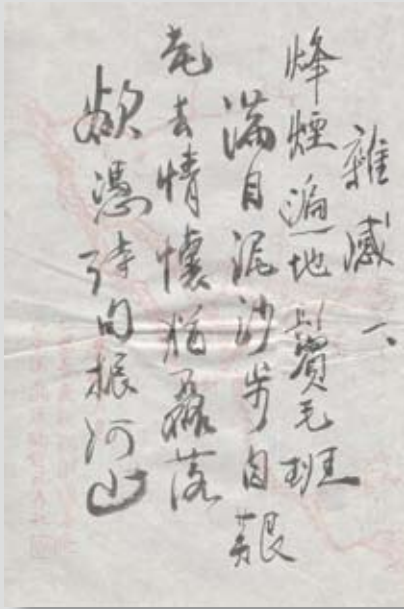 雜感一
烽煙遍地鬢毛班
滿目泥沙步自艱
老去情懷猶磊落
欲憑詩句振河山